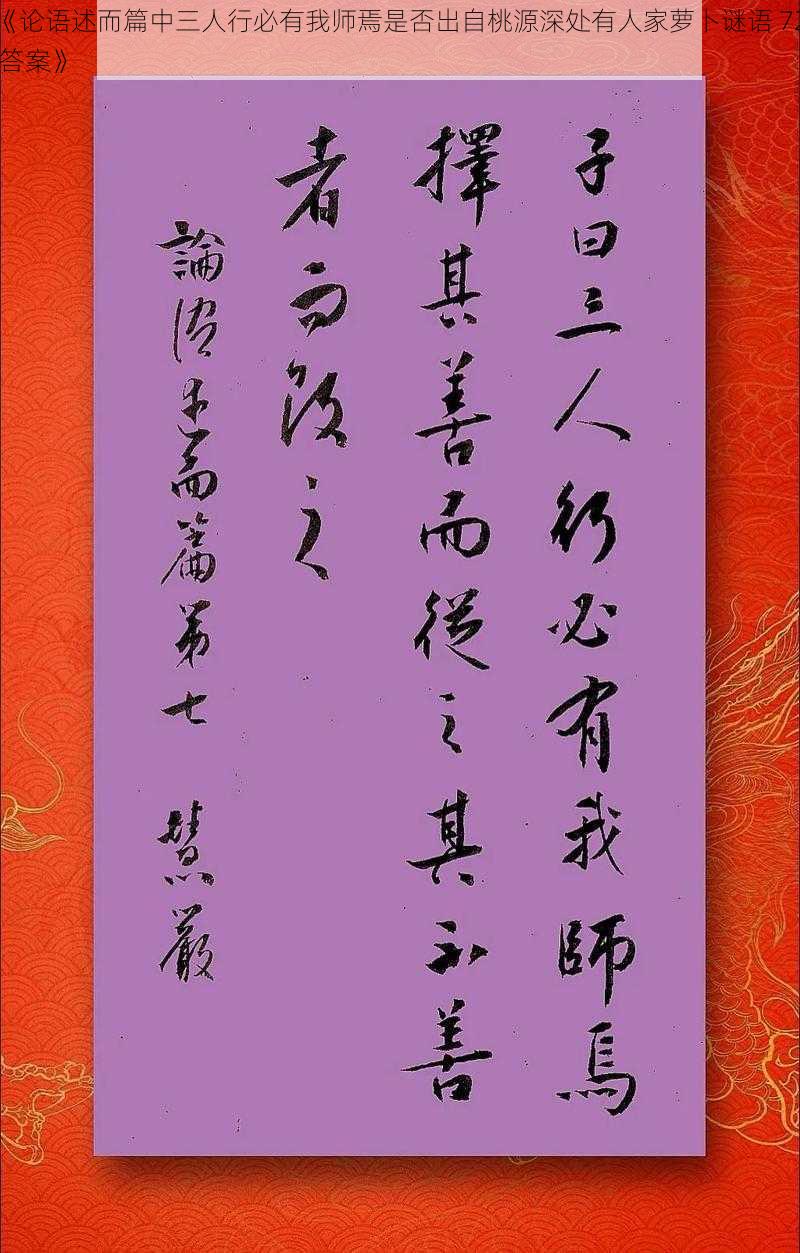 《论语述而篇中三人行必有我师焉是否出自桃源深处有人家萝卜谜语 72
答案》
子曰三人行必有我師焉
擇其善而從之其不善
者而改之
論語述而篇第七 慧嚴